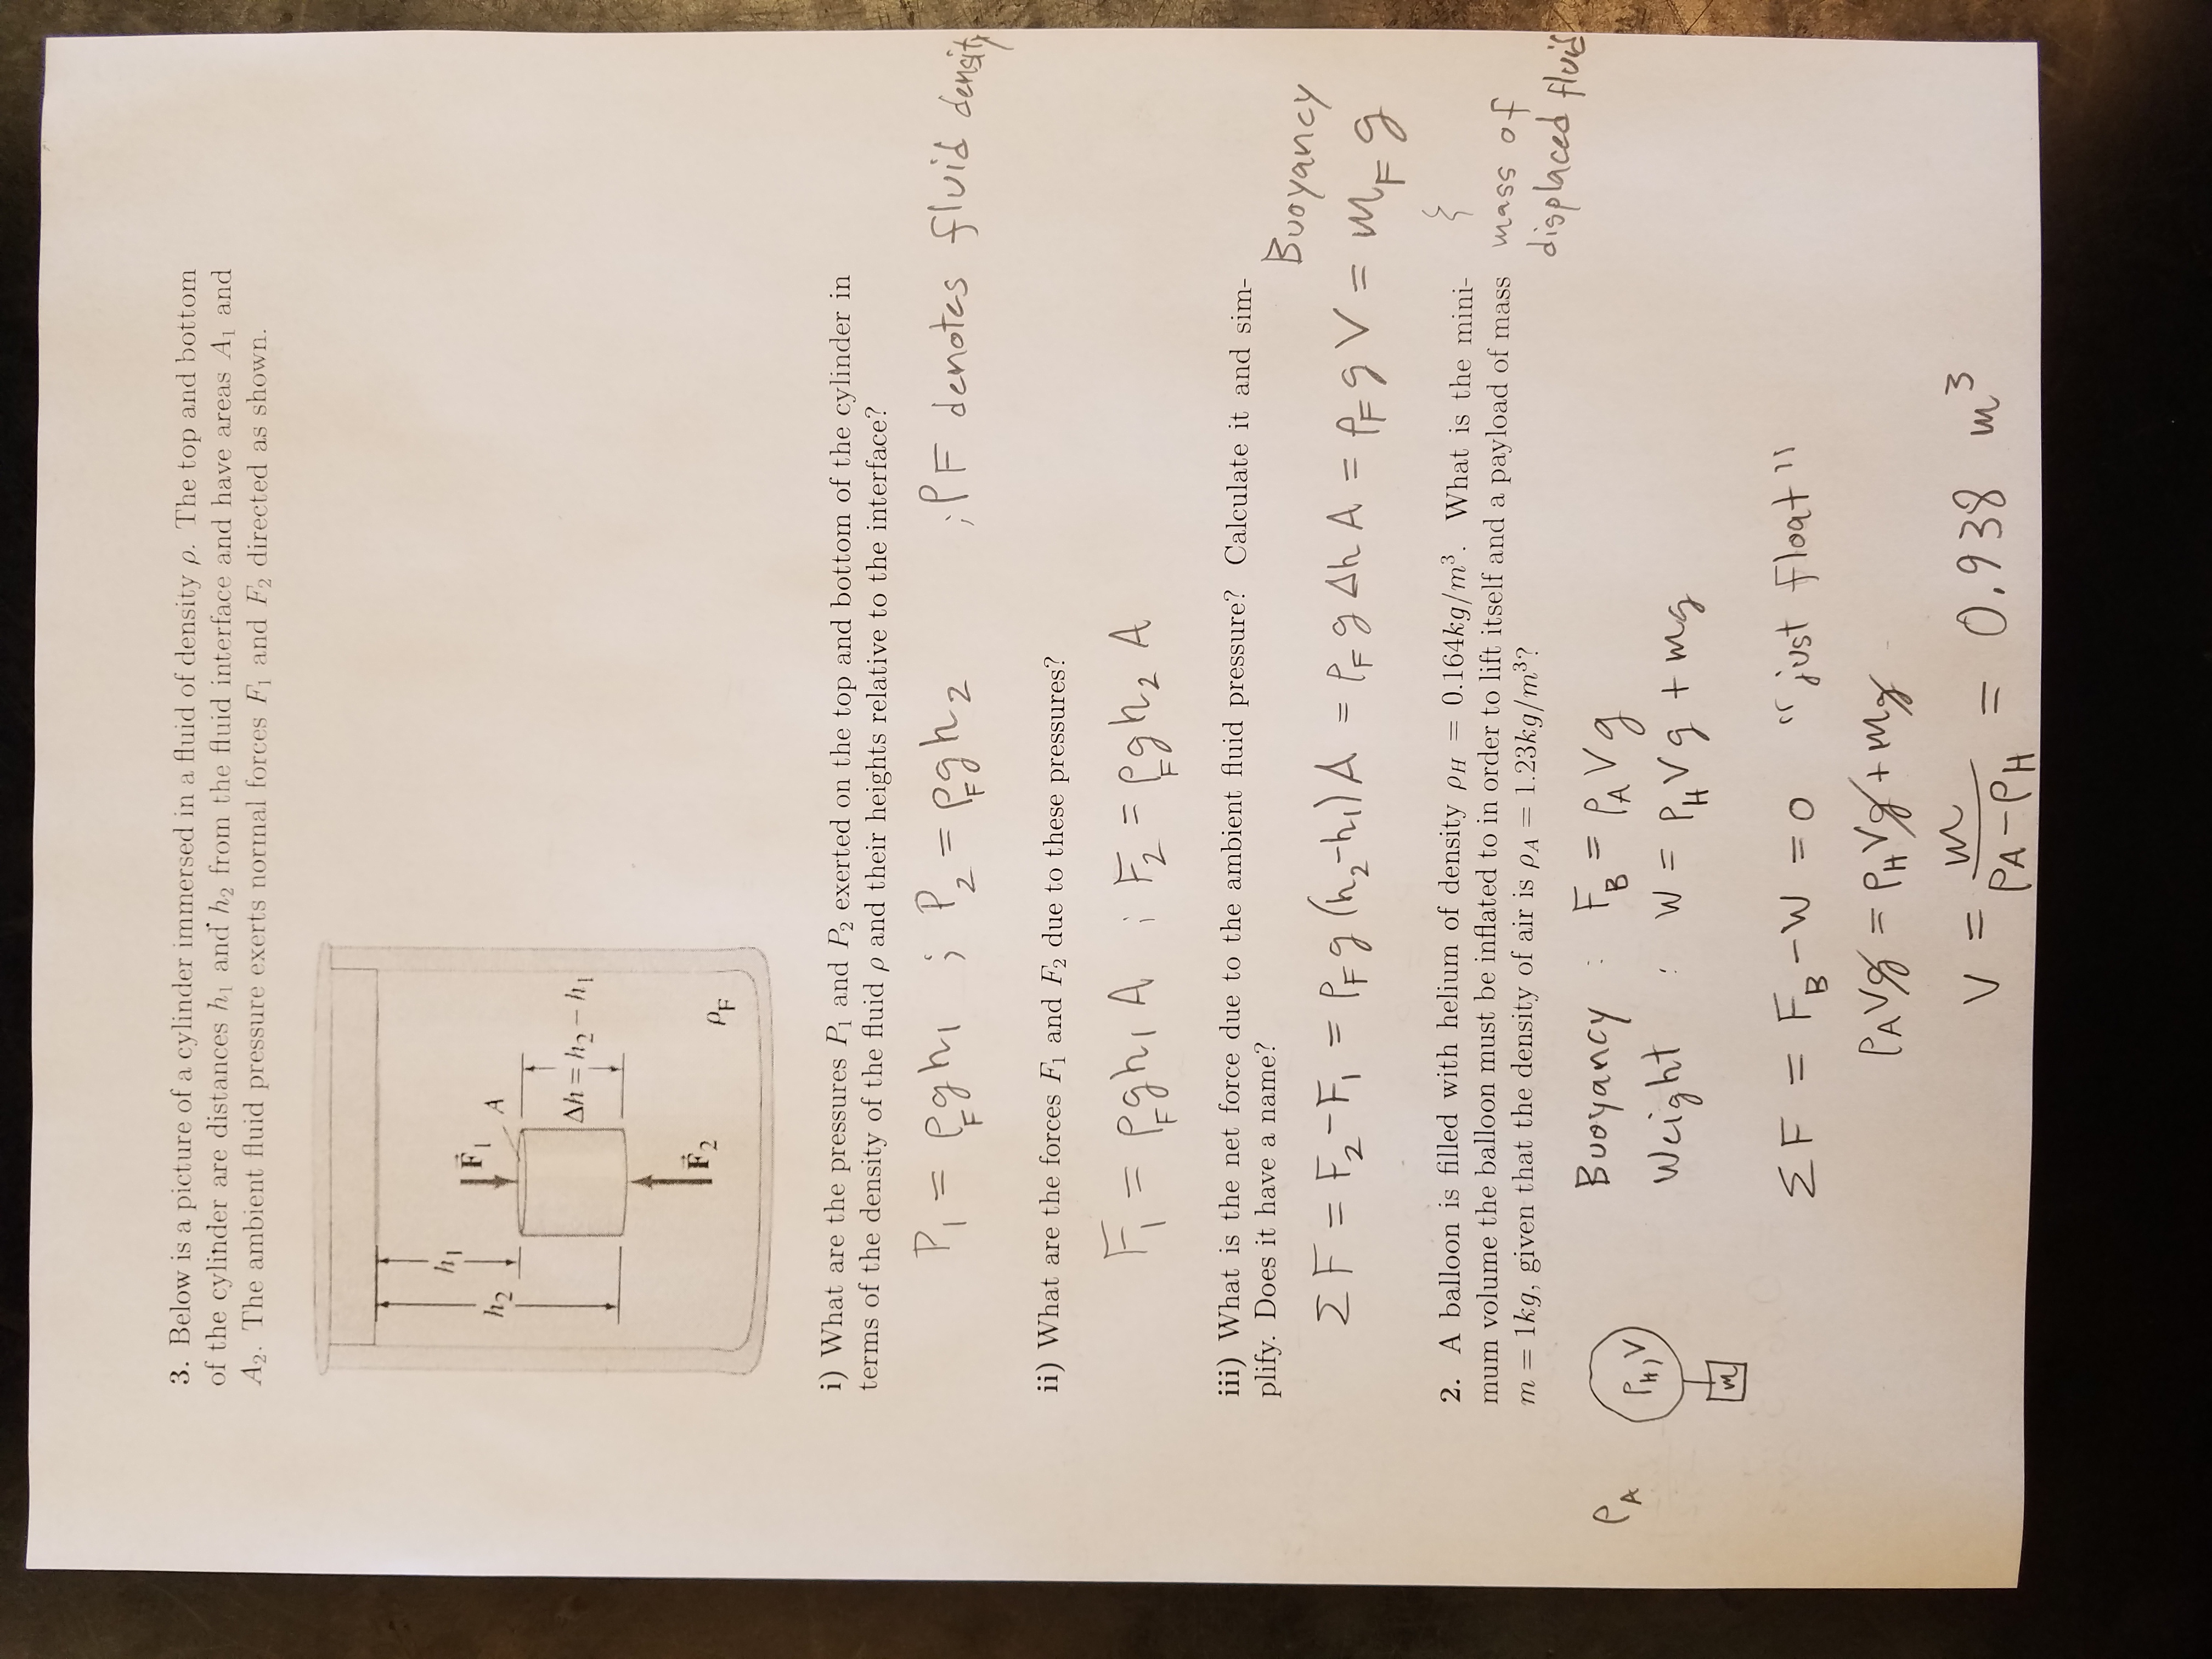 3. Below is a picture of a cylinder immersed in a fluid of density ρ. The top and bottom
of the cylinder are distances h₁ and h₂ from the fluid interface and have areas A₁ and
A₂. The ambient fluid pressure exerts normal forces F₁ and F₂ directed as shown.
h₁
h₂
F⃗₁
A
Δh = h₂ − h₁
F⃗₂
ρF
i) What are the pressures P₁ and P₂ exerted on the top and bottom of the cylinder in
terms of the density of the fluid ρ and their heights relative to the interface?
P₁ = ρFgh₁ ; P₂ = ρFgh₂ ; ρF denotes fluid density
ii) What are the forces F₁ and F₂ due to these pressures?
F₁ = ρFgh₁A ; F₂ = ρFgh₂A
iii) What is the net force due to the ambient fluid pressure? Calculate it and sim-
plify. Does it have a name?
Buoyancy
ΣF = F₂−F₁ = ρFg(h₂−h₁)A = ρFgΔhA = ρFgV = mFg
2. A balloon is filled with helium of density ρH = 0.164kg/m³. What is the mini-
mum volume the balloon must be inflated to in order to lift itself and a payload of mass
m = 1kg, given that the density of air is ρA = 1.23kg/m³?
mass of
displaced fluid
ρA
ρH, V
m
Buoyancy : FB = ρAVg
Weight : W = ρHVg + mg
ΣF = FB−W = 0 "just float"
ρAVg = ρHVg + mg
V = m/(ρA−ρH) = 0.938 m³